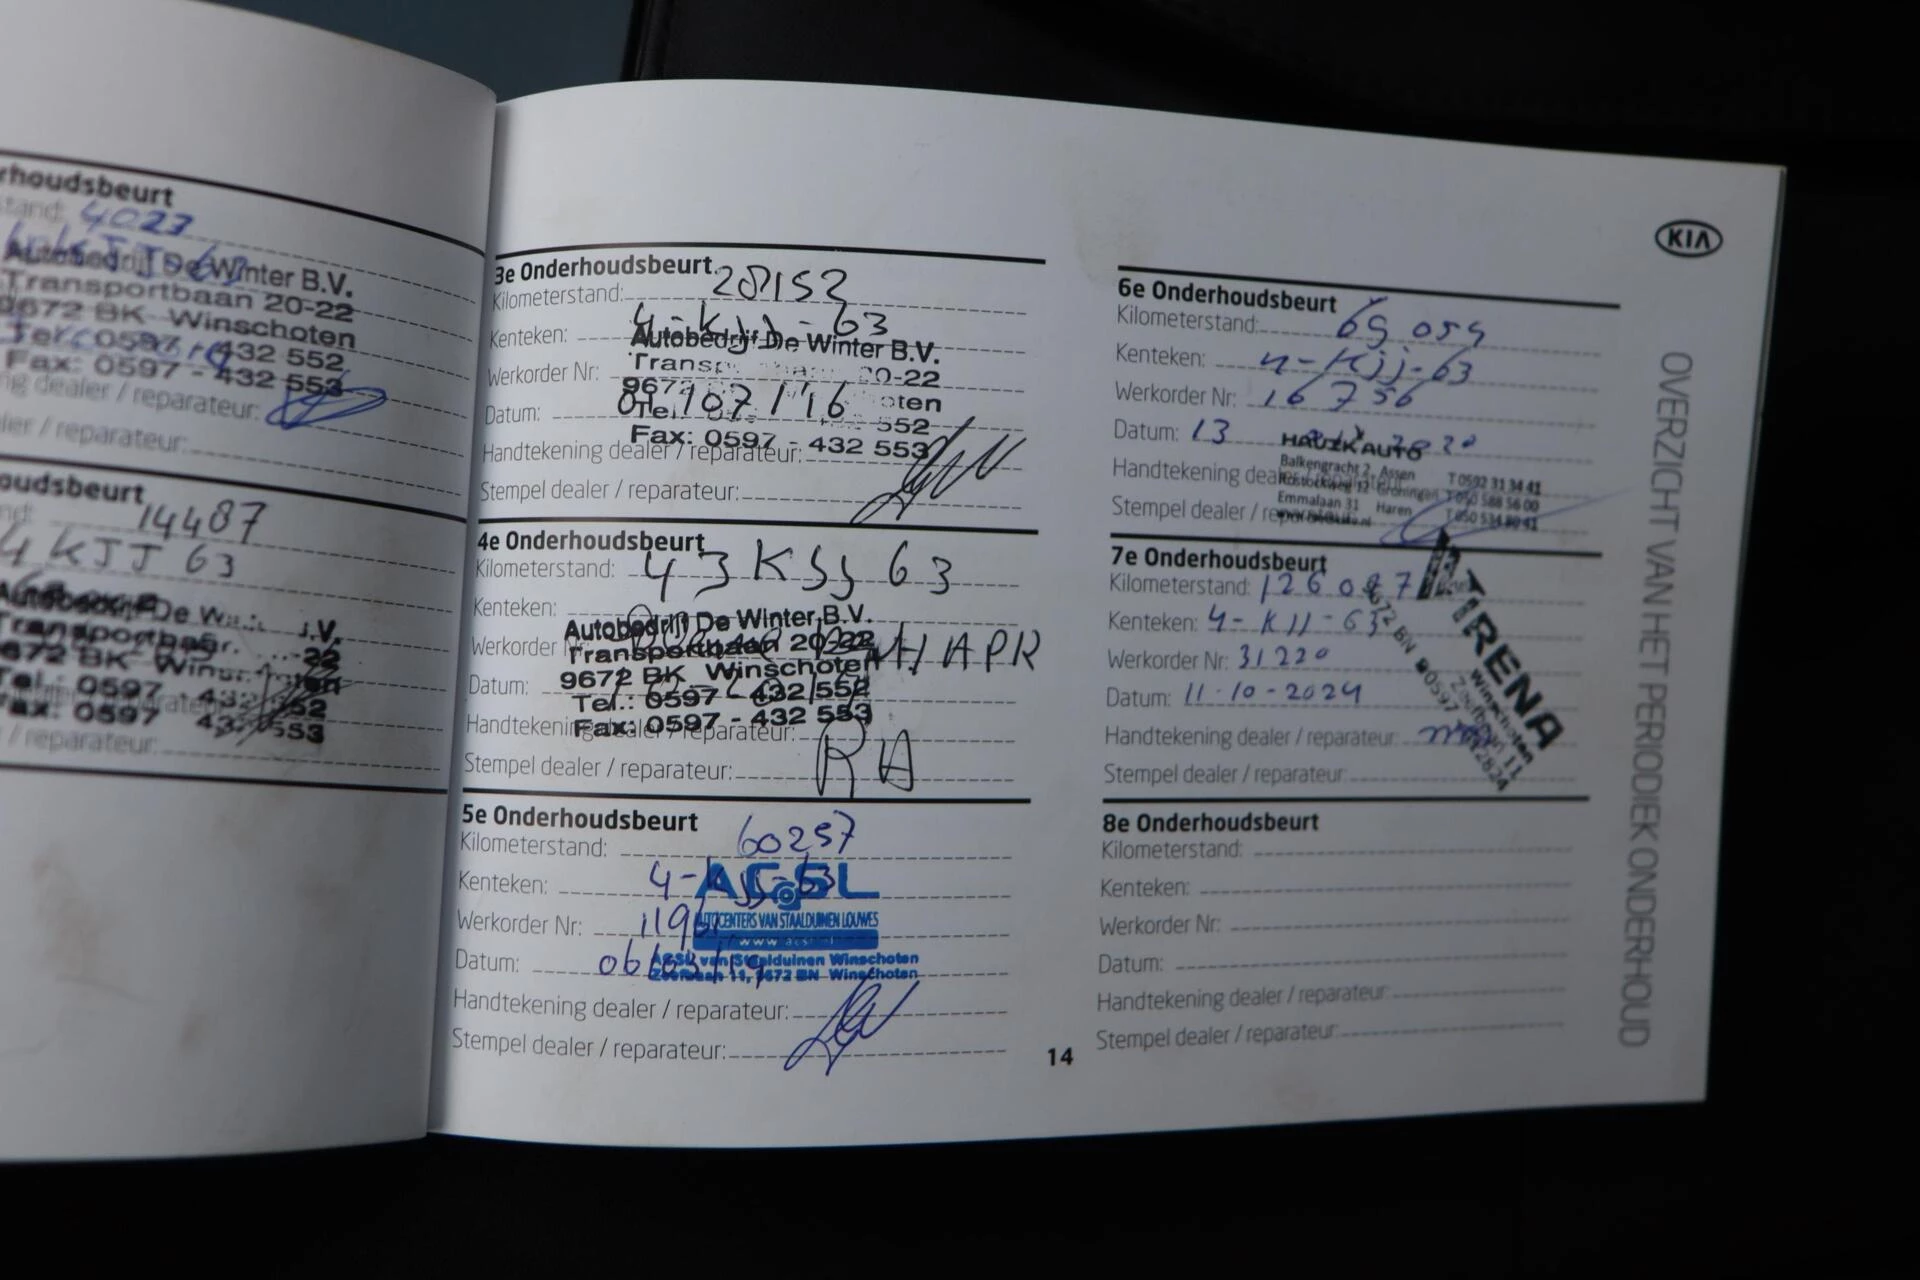 rhoudsbeurt
stand: 4023
Autobedrijf De Winter B.V.
Transportbaan 20-22
9672 BK Winschoten
Tel.: 0597 - 432 552
Fax: 0597 - 432 553
ng dealer / reparateur:
ealer / reparateur:
oudsbeurt
nd: 14487
4 KJJ 63
Autobedrijf De W V.
Transportbaan -22
9672 BK Winschoten
Tel.: 0597 - 432 552
Fax: 0597 432 553
/ reparateur:
3e Onderhoudsbeurt
Kilometerstand: 28152
Kenteken: 4-KJJ-63
Autobedrijf De Winter B.V.
Werkorder Nr:
Trans 20-22
9672 oten
Datum: 07/16
Tel 552
Fax: 0597 - 432 553
Handtekening dealer / reparateur:
Stempel dealer / reparateur:
4e Onderhoudsbeurt
Kilometerstand: 43KJJ63
Kenteken:
Autobedrijf De Winter B.V.
Werkorder
Transportbaan 20-22
9672 BK Winschoten
Datum:
Tel.: 0597 - 432 552
Fax: 0597 - 432 553
Handtekening dealer / reparateur:
RA
Stempel dealer / reparateur:
5e Onderhoudsbeurt
Kilometerstand: 60257
Kenteken: 4-KJJ-63
ACSL
Werkorder Nr:
AUTOCENTERS VAN STAALDUINEN LOUWES
Datum: 06/03/19
ACSL van Staalduinen Winschoten
Zeefbaan 11, 9672 BN Winschoten
Handtekening dealer / reparateur:
Stempel dealer / reparateur:
14
KIA
6e Onderhoudsbeurt
Kilometerstand: 69 054
Kenteken: 4-Kjj-63
Werkorder Nr: 16756
Datum: 13 2020
HAUZK AUTO
Balkengracht 2, Assen T 0592 31 34 41
Handtekening dealer / reparateur:
Rostockweg 12 Groningen T 050 588 56 00
Emmalaan 31 Haren T 050 534 80 41
Stempel dealer / reparateur:
7e Onderhoudsbeurt
Kilometerstand: 126087
Kenteken: 4-KJJ-63
Werkorder Nr: 31220
Datum: 11-10-2024
Handtekening dealer / reparateur:
Stempel dealer / reparateur:
TIRENA
Zeefbaan 11
9672 BN Winschoten
8e Onderhoudsbeurt
Kilometerstand:
Kenteken:
Werkorder Nr:
Datum:
Handtekening dealer / reparateur:
Stempel dealer / reparateur:
OVERZICHT VAN HET PERIODIEK ONDERHOUD